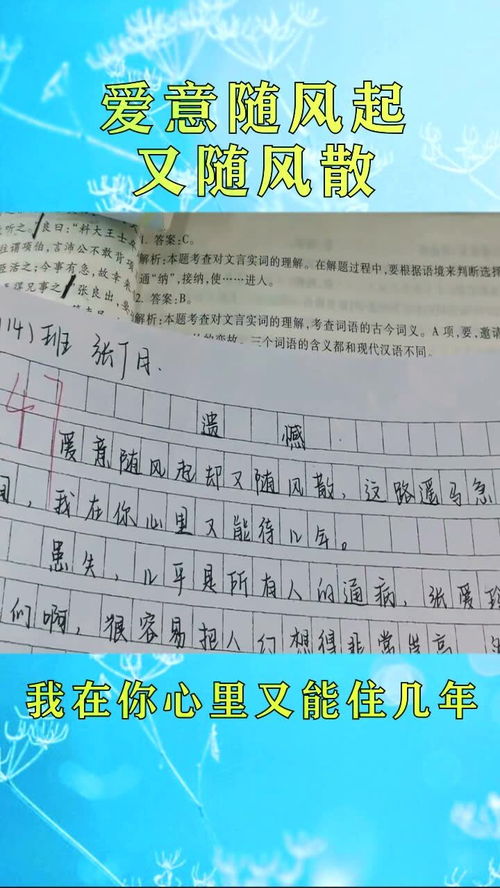 爱意随风起
又随风散
听之。良曰："料大王士
往谓项伯，言沛公不敢背项
臣活之；今事有急，故幸来
张良出，
1. 答案:C。
解析:本题考查对文言实词的理解。在解题过程中,要根据语境来判断选择
通"纳",接纳,使……进入。
2. 答案:B。
解析:本题考查对文言实词的理解,考查词语的古今词义。A项,要,邀请
三个词语的含义都和现代汉语不同。
14)班 张丁月.
47
遗憾
爱意随风起却又随风散，这路遥马急
，我在你心里又能待几年。
患失，几乎是所有人的通病，张爱玲
们啊，很容易把人们想得非常
我在你心里又能住几年